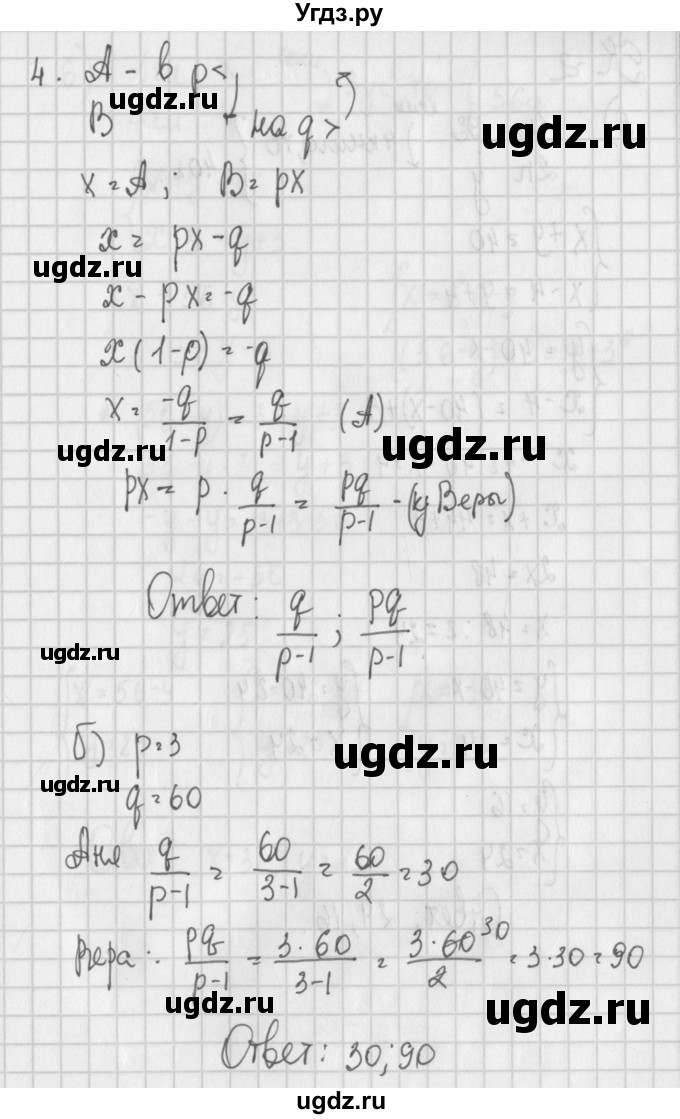 Угдз.ру
4. А - в p <
В - на q >
x = A; B = px
x = px - q
x - px = -q
x(1-p) = -q
x = -q/1-p = q/p-1 (A)
px = p · q/p-1 = pq/p-1 - (у Веры)
Ответ: q/p-1; pq/p-1
б) p = 3
q = 60
Аня q/p-1 = 60/3-1 = 60/2 = 30
Вера: pq/p-1 = 3·60/3-1 = 3·60/2 30 = 3·30 = 90
Ответ: 30; 90
ugdz.ru
ugdz.ru
ugdz.ru
ugdz.ru
ugdz.ru
ugdz.ru
ugdz.ru
ugdz.ru
ugdz.ru
ugdz.ru
ugdz.ru
ugdz.ru